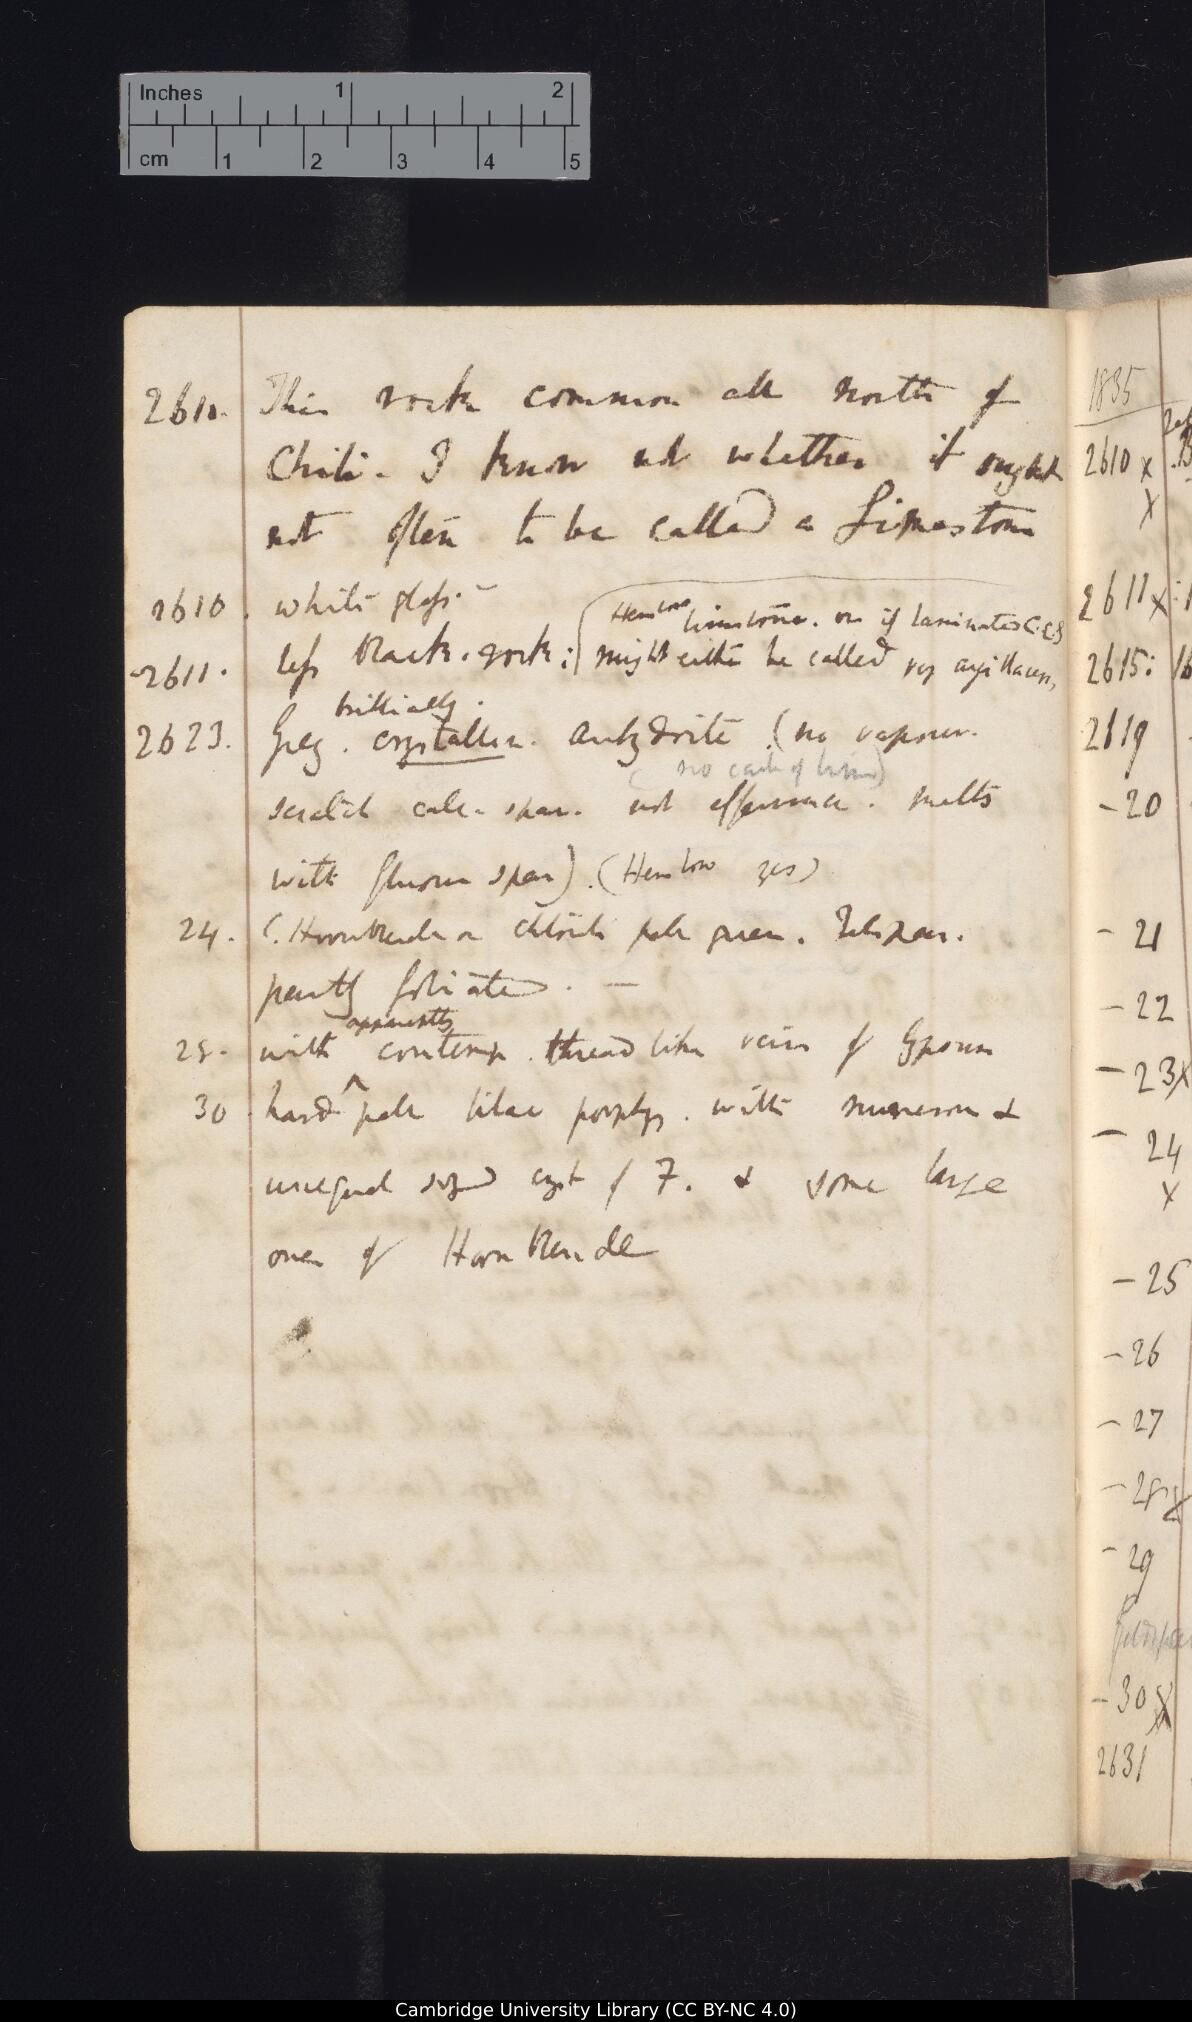 Inches 1 2
cm 1 2 3 4 5
2610. This rock common all north of
Chili. I know not whether it ought
not often to be called a Limestone
2610. white glass. —
Henslow limestone. or if laminated C.C.S
2611. less black. rock: might either be called argillaceous
brilliantly.
2623. Grey. crystalline. anhydrite (no vapour.
(no carb of lime)
scratch calc. spar. not effervesce. melts
with fluour spar). (Henslow yes)
24. (. Hornblende or chlorite pale green. Feldspar.
partly foliated. —
apparently
25. with ^ contemp. thread like veins of Gypsum
30 hard pale lilac porphyry. with numerous &
unequal sized cryst of F. & some large
ones of Hornblende
1835
2610 x
x
2611 x
2615: 16
2619
— 20
— 21
— 22
— 23 x
— 24
x
— 25
— 26
— 27
— 28
— 29
— 30 x
2631
Cambridge University Library (CC BY-NC 4.0)